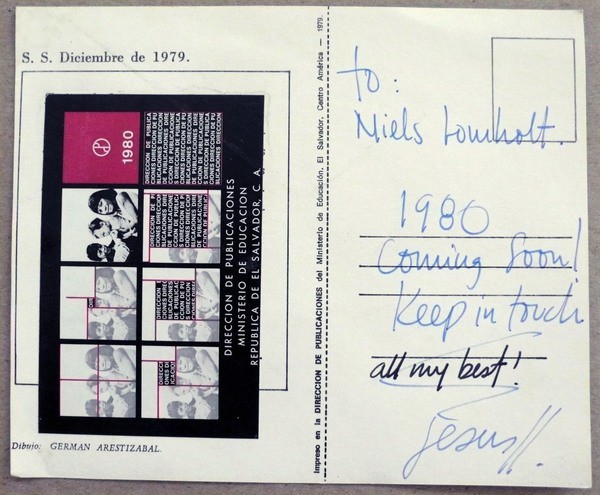 S. S. Diciembre de 1979.
1980
DIRECCION DE PUBLICACIONES
MINISTERIO DE EDUCACION
REPUBLICA DE EL SALVADOR, C. A.
Dibujo: GERMAN ARESTIZABAL.
Impreso en la DIRECCION DE PUBLICACIONES del Ministerio de Educación, El Salvador, Centro América — 1979.
To:
Niels Lomholt.
1980
Coming Soon!
Keep in touch
all my best!
Jesus